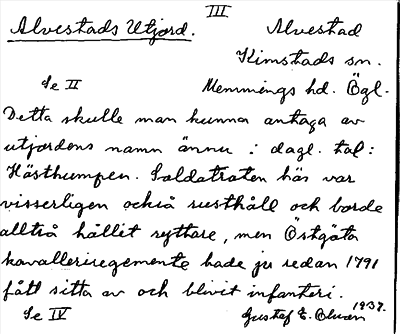 III
Alvestads Utjord. Alvestad
Kimstads sn.
Se II Memmings hd. Ögl.
Detta skulle man kunna antaga av
utjordens namn ännu i dagl. tal:
Hästhumpen. Soldatroten här var
visserligen också rusthåll och borde
alltså hållit ryttare, men Östgöta
kavalleriregemente hade ju redan 1791
fått sitta av och blivit infanteri.
Se IV Gustaf E. 1937.